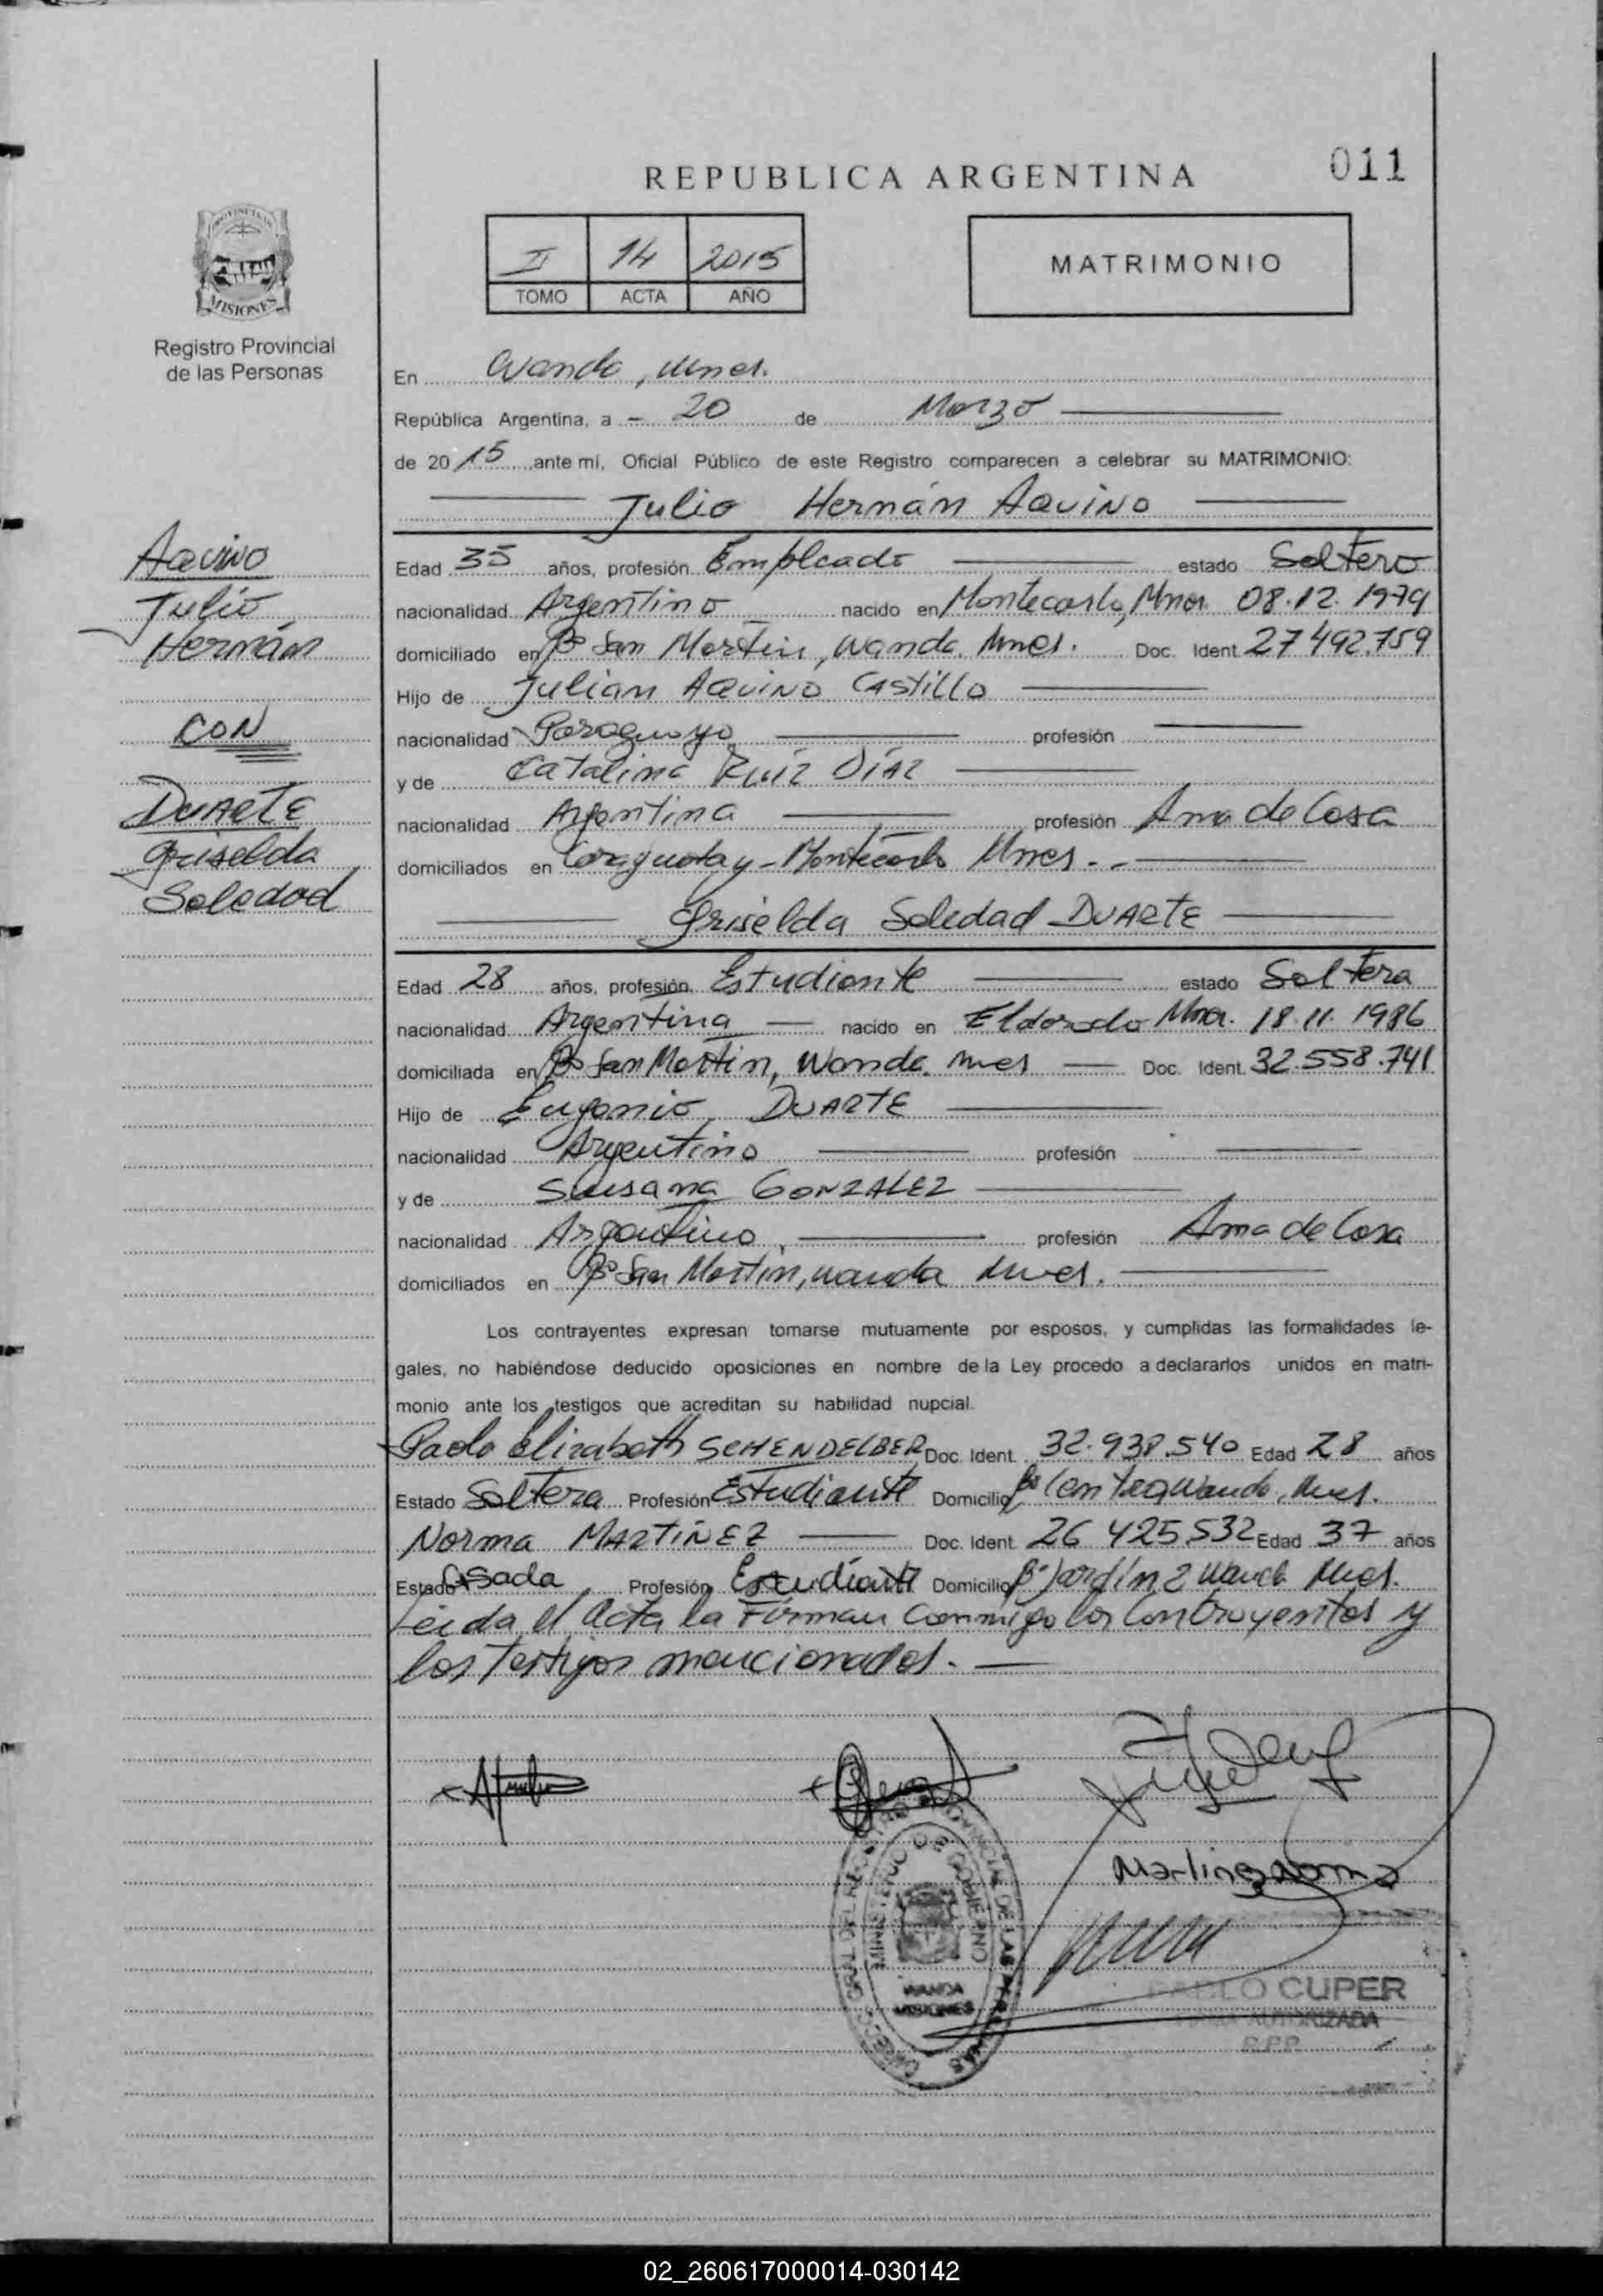 011
REPUBLICA ARGENTINA
II 14 2015
TOMO ACTA AÑO
MATRIMONIO
MISIONES
Registro Provincial
de las Personas
En Wanda, Mnes.
República Argentina, a - 20 de Marzo
de 2015, ante mí, Oficial Público de este Registro comparecen a celebrar su MATRIMONIO:
Julio Hernán AQUINO
AQUINO
Julio
Hernán
CON
DUARTE
Griselda
Soledad
Edad 35 años, profesión Empleado estado Soltero
nacionalidad Argentino nacido en Montecarlo, Mnes. 08.12.1979
domiciliado en Bº San Martin, Wanda. Mnes. Doc. Ident. 27492.759
Hijo de Julian AQUINO CASTILLO
nacionalidad Paraguayo profesión
y de Catalina RUIZ DÍAZ
nacionalidad Argentina profesión Ama de Casa
domiciliados en Caraguatay - Montecarlo Mnes. -
Griselda Soledad DUARTE
Edad 28 años, profesión Estudiante estado Soltera
nacionalidad Argentina nacido en Eldorado Mnes. 18.11.1986
domiciliada en Bº San Martin, Wanda. Mnes Doc. Ident. 32.558.741
Hijo de Eugenio DUARTE
nacionalidad Argentino profesión
y de Susana GONZALEZ
nacionalidad Argentino profesión Ama de Casa
domiciliados en Bº San Martin, Wanda Mnes.
Los contrayentes expresan tomarse mutuamente por esposos, y cumplidas las formalidades le-
gales, no habiéndose deducido oposiciones en nombre de la Ley procedo a declararlos unidos en matri-
monio ante los testigos que acreditan su habilidad nupcial.
Paola Elizabeth SCHENDELBER Doc. Ident. 32.938.540 Edad 28 años
Estado Soltera Profesión Estudiante Domicilio Bº Wanda, Mnes.
Norma MARTINEZ Doc. Ident. 26 425.532 Edad 37 años
Estado Casada Profesión Estudiante Domicilio Bº Jardín 2 Wanda Mnes.
Leida el Acta la Firman Conmigo los Contrayentes y
los Testigos mencionados. -
Martinez Norma
MINISTERIO DE GOBIERNO
WANDA
MISIONES
PABLO CUPER
FIRMA AUTORIZADA
R.P.P.
02_260617000014-030142